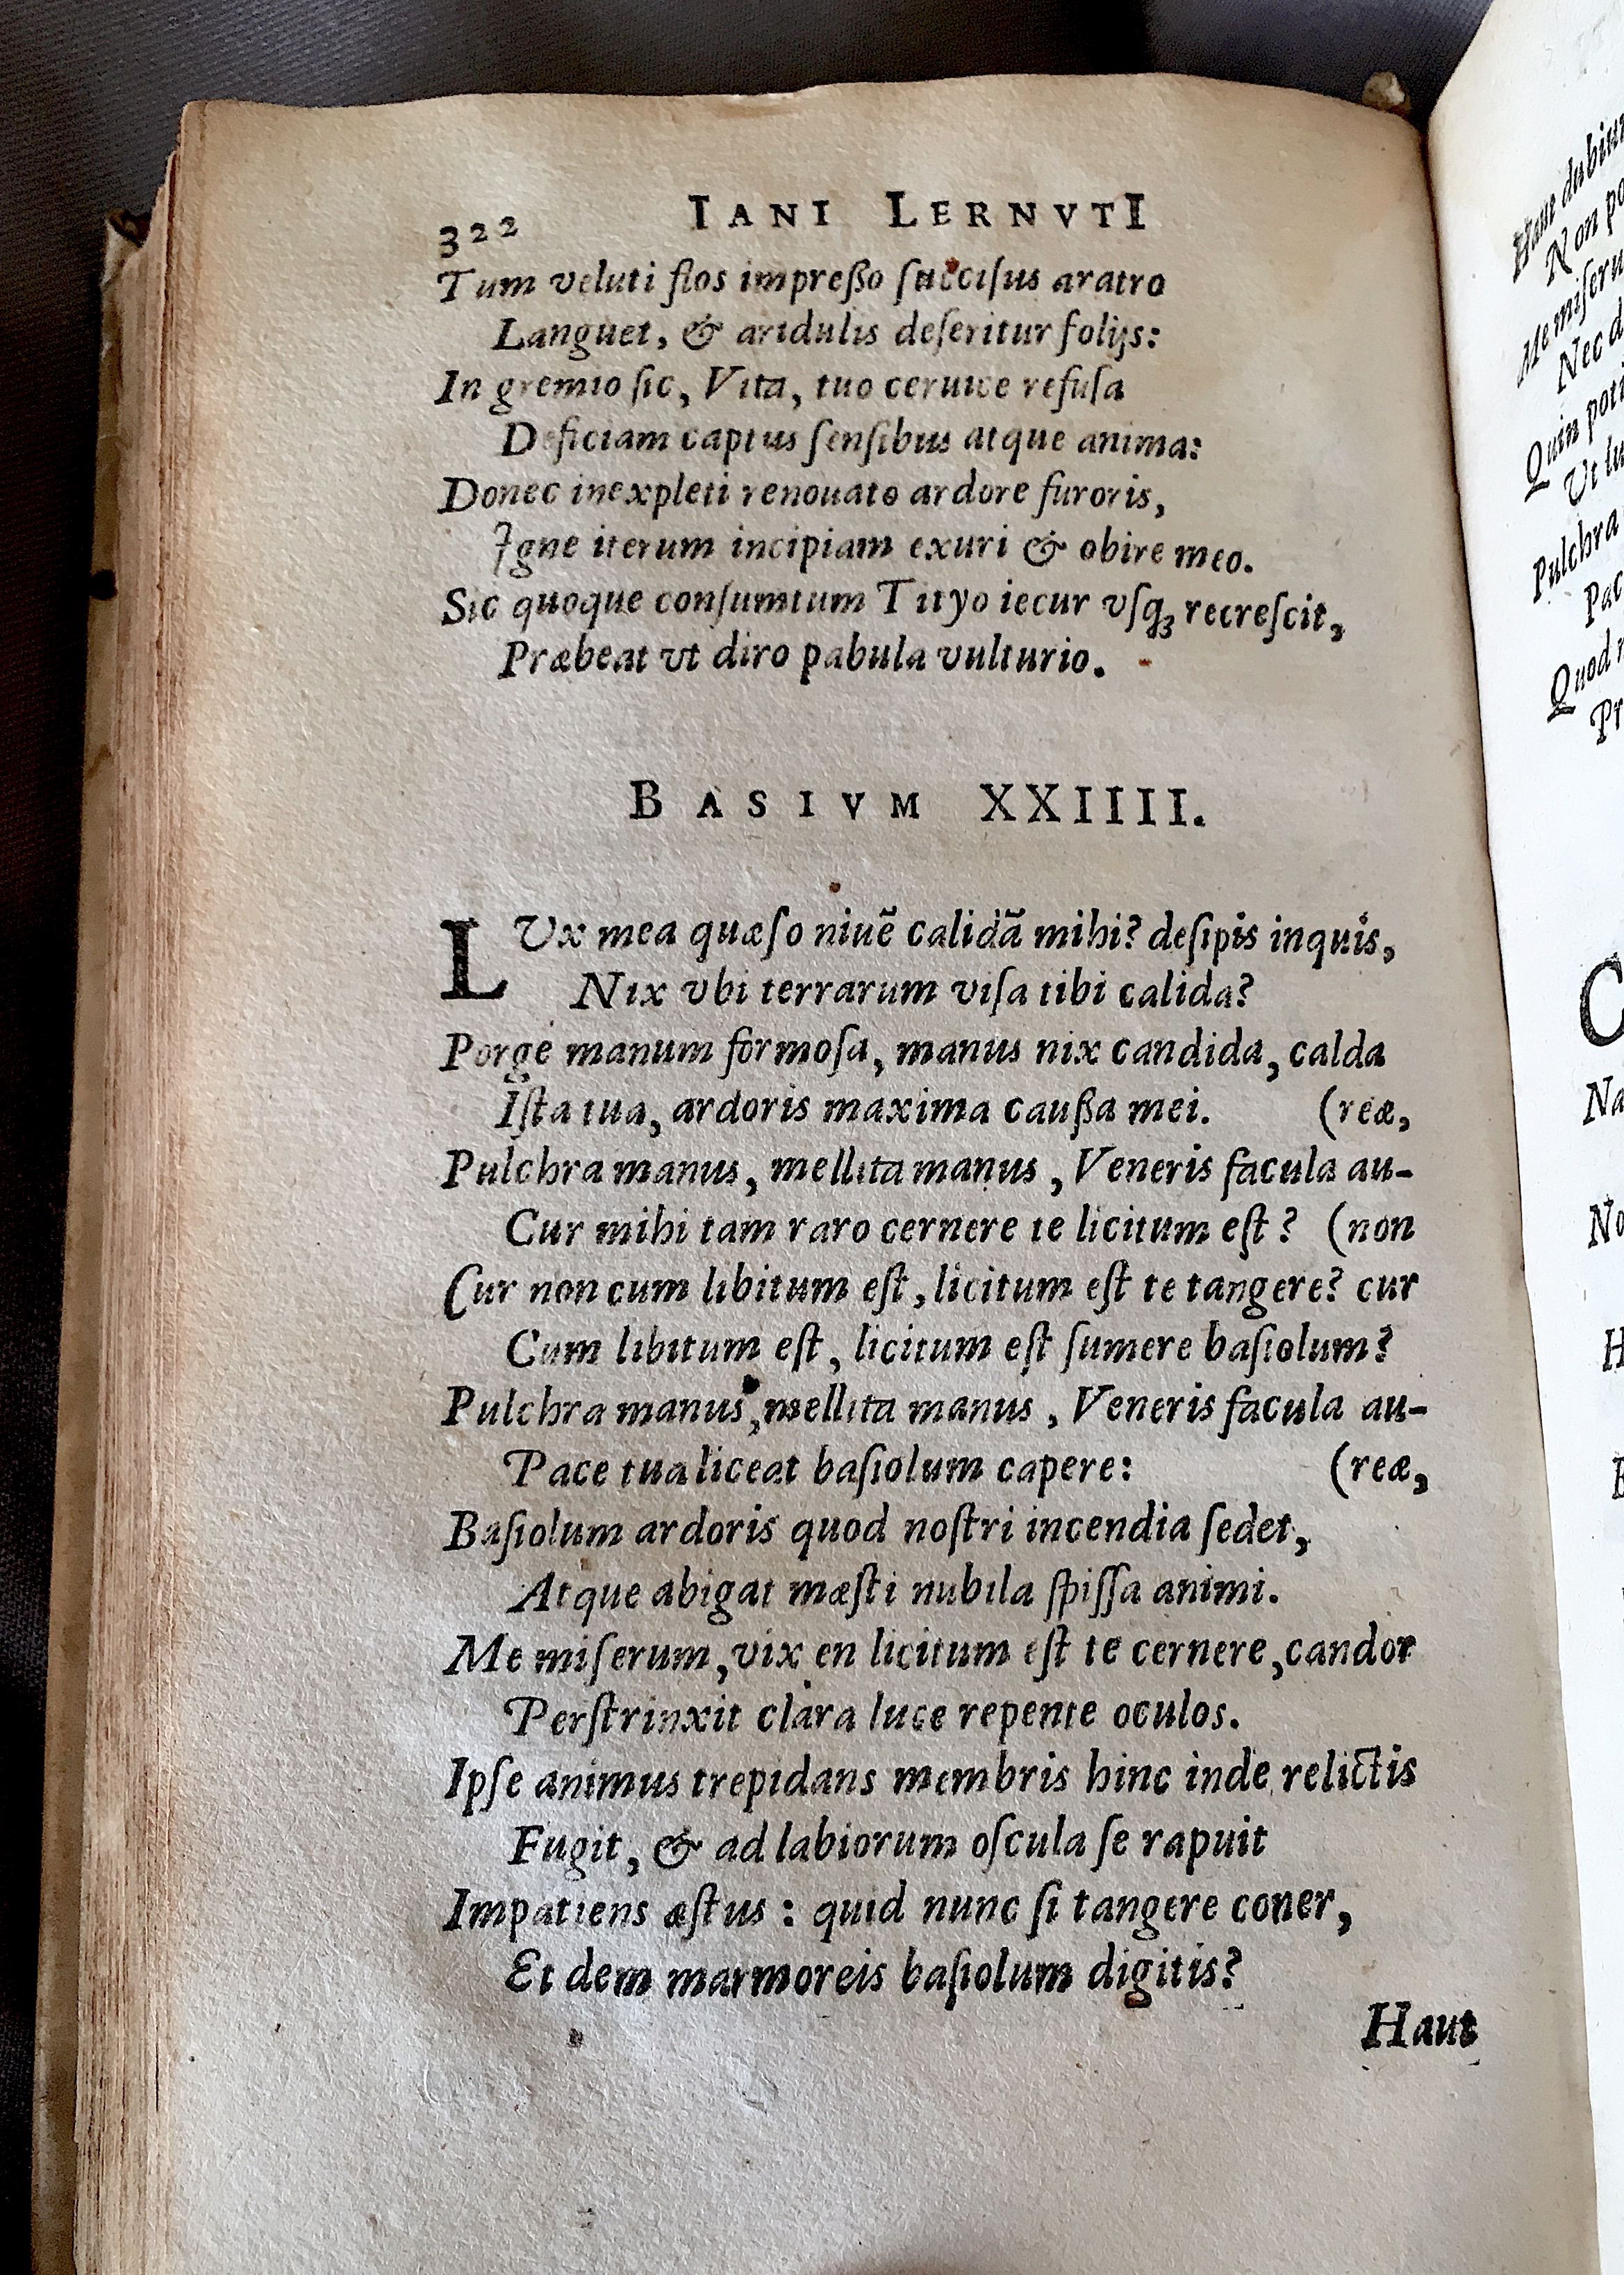 322 IANI LERNVTI
Tum veluti flos impreßo succisus aratro
Languet, & aridulis deseritur folijs:
In gremio sic, Vita, tuo ceruice refusa
Deficiam captus sensibus atque anima:
Donec inexpleti renouato ardore furoris,
Igne iterum incipiam exuri & obire meo.
Sic quoque consumtum Tityo iecur vsqꝫ recrescit,
Præbeat vt diro pabula vulturio.
BASIVM XXIIII.
LVx mea quæso niuẽ calidã mihi? desipis inquis,
Nix vbi terrarum visa tibi calida?
Porge manum formosa, manus nix candida, calda
Ista tua, ardoris maxima caußa mei. (reæ,
Pulchra manus, mellita manus, Veneris facula au-
Cur mihi tam raro cernere te licitum est? (non
Cur non cum libitum est, licitum est te tangere? cur
Cum libitum est, licitum est sumere basiolum?
Pulchra manus, mellita manus, Veneris facula au-
Pace tua liceat basiolum capere: (reæ,
Basiolum ardoris quod nostri incendia sedet,
Atque abigat mæsti nubila spissa animi.
Me miserum, vix en licitum est te cernere, candor
Perstrinxit clara luce repente oculos.
Ipse animus trepidans membris hinc inde relictis
Fugit, & ad labiorum oscula se rapuit
Impatiens æstus : quid nunc si tangere coner,
Et dem marmoreis basiolum digitis?
Haut
Haut dubium
Non po
Me miseru
Nec d
Quin poti
Vt lu
Pulchra
Pac
Quod
Pr
C
Na
No
H